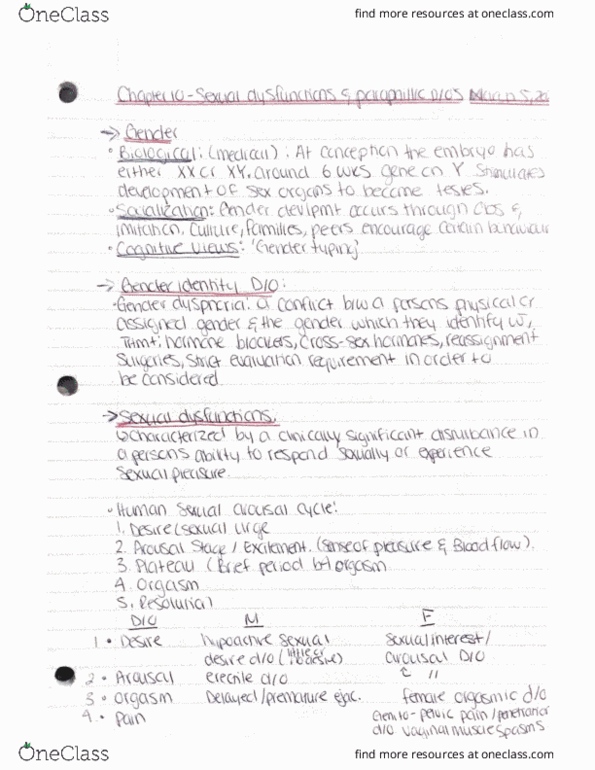 OneClass
find more resources at oneclass.com
Chapter 10 - Sexual dysfunctions & paraphilic D/O's March 5, 20
→ Gender
• Biological: (medical): At conception the embryo has
either XX or XY. around 6 wks gene on Y stimulates
development of sex organs to become testes.
• Socialization: Gender devlpmt occurs through obs &
imitation. Culture, families, peers encourage certain behaviour
• Cognitive views: 'Gender typing'
→ Gender identity D/O:
• Gender dysphoria: a conflict b/w a persons physical or
assigned gender & the gender which they identify w/,
Thmt: hormone blockers, cross-sex hormones, reassignment
surgeries, strict evaluation requirement in order to
be considered
→ Sexual dysfunctions:
↳ Characterized by a clinically significant disturbance in
a persons ability to respond sexually or experience
sexual pleasure.
• Human sexual arousal cycle:
1. Desire (sexual urge
2. Arousal Stage / Excitement. (sense of pleasure & Blood flow).
3. Plateau (Brief period b4 orgasm
4. Orgasm
5. Resolution
D/O M F
1 • Desire hypoactive sexual desire d/o (little or no desire) Sexual interest / arousal D/O
2 • Arousal erectile d/o ↑ "
3 • orgasm Delayed / premature ejac. female orgasmic d/o
4 • Pain Genito-pelvic pain / penetration
d/o vaginal muscle spasms
OneClass
find more resources at oneclass.com